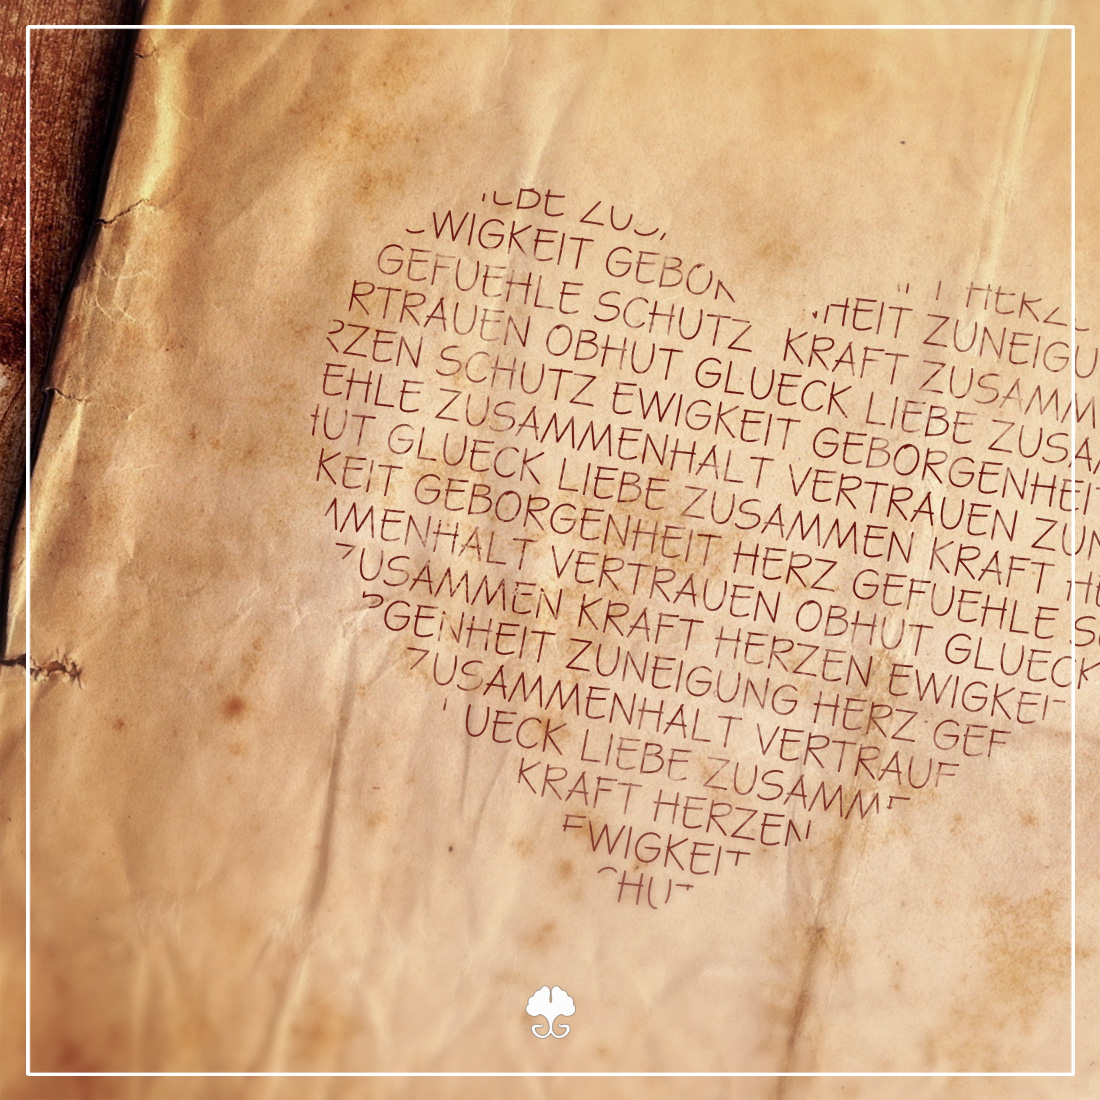 EBE ZUS HERZ
EWIGKEIT GEBOR HEIT ZUNEIGU
GEFUEHLE SCHUTZ KRAFT ZUSAMM
RTRAUEN OBHUT GLUECK LIEBE ZUSA
RZEN SCHUTZ EWIGKEIT GEBORGENHEIT
EHLE ZUSAMMENHALT VERTRAUEN ZUN
HUT GLUECK LIEBE ZUSAMMEN KRAFT HE
KEIT GEBORGENHEIT HERZ GEFUEHLE SC
MMENHALT VERTRAUEN OBHUT GLUECK
ZUSAMMEN KRAFT HERZEN EWIGKEIT
RGENHEIT ZUNEIGUNG HERZ GEF
ZUSAMMENHALT VERTRAUE
UECK LIEBE ZUSAMME
KRAFT HERZEN
EWIGKEIT
HUT